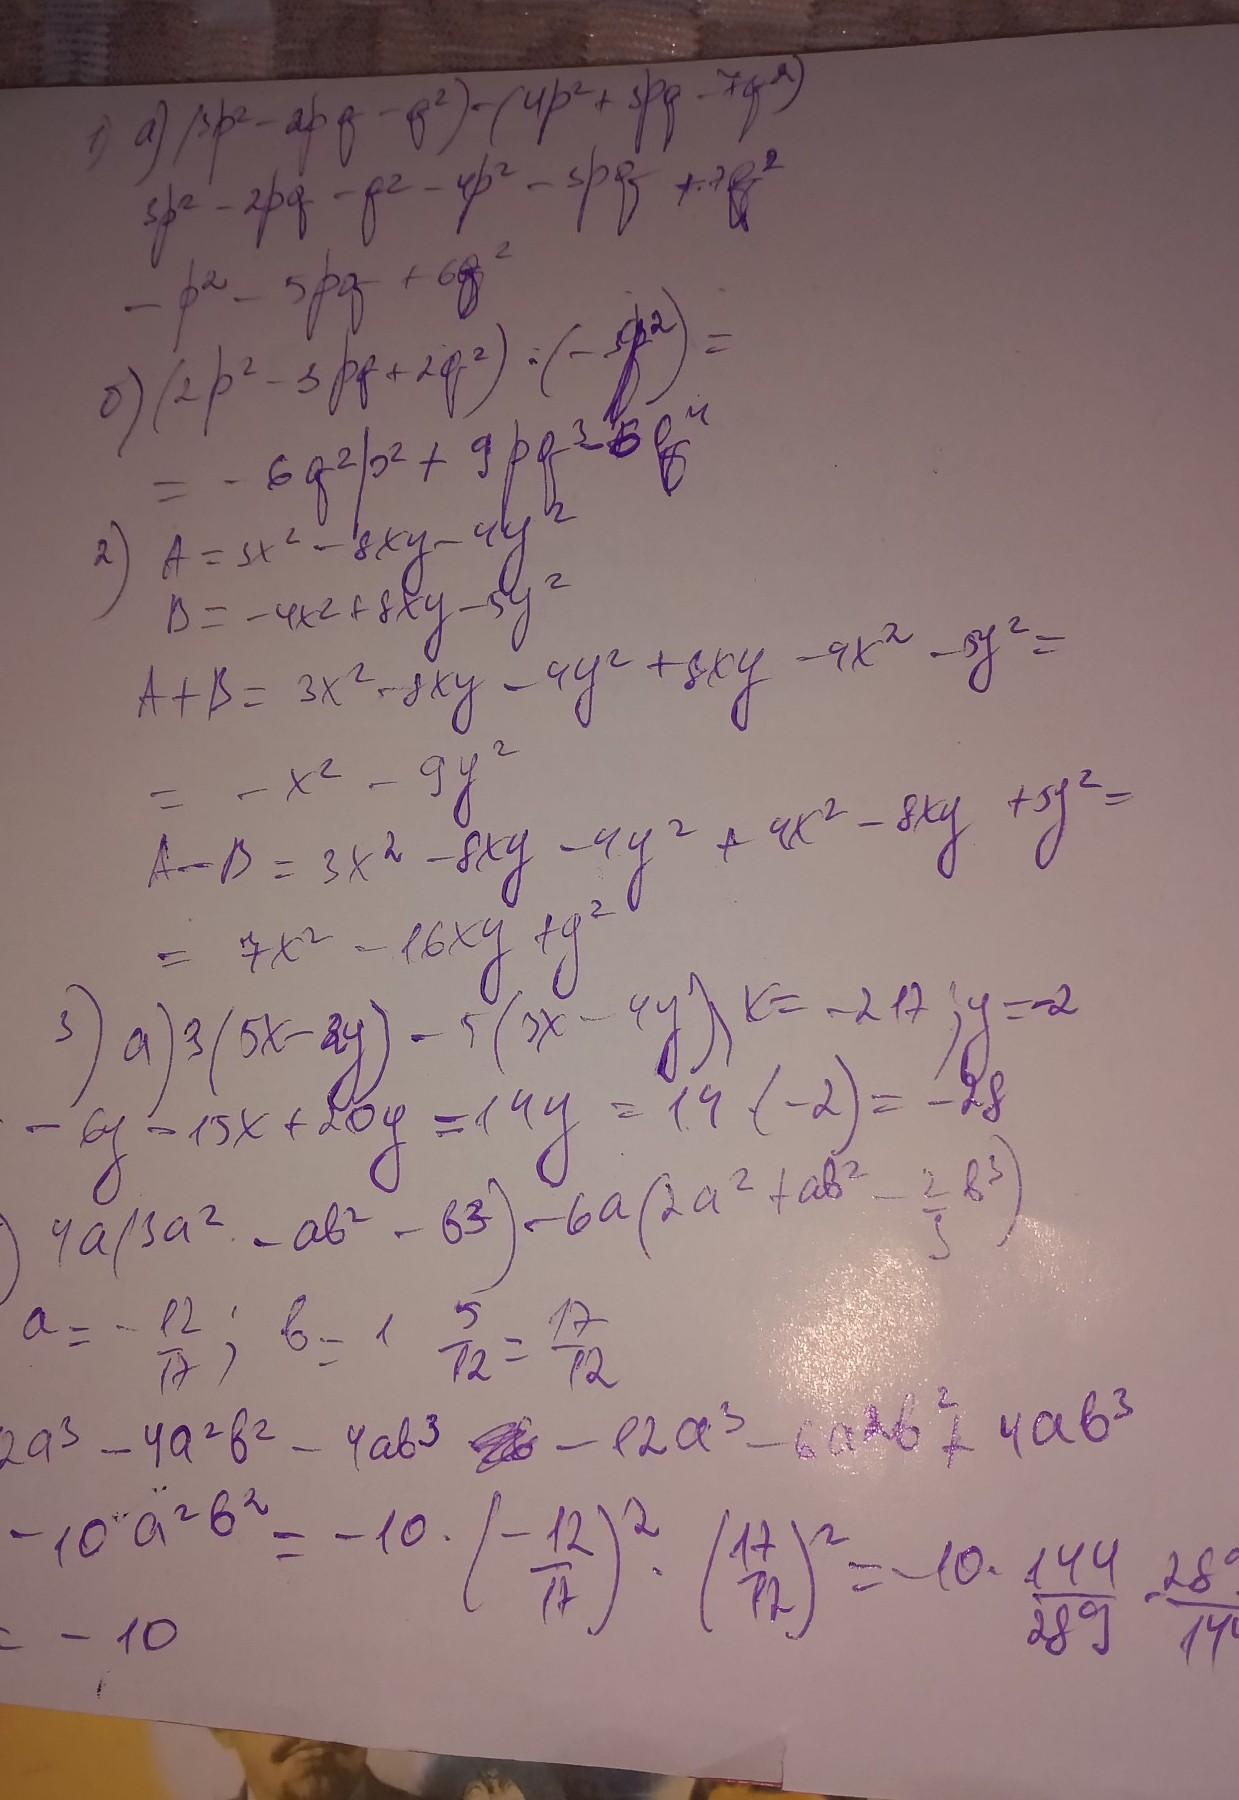 1) а) (3p² - 2pq - q²) - (4p² + 3pq - 7q²)
3p² - 2pq - q² - 4p² - 3pq + 7q²
- p² - 5pq + 6q²
б) (2p² - 3pq + 2q²) · (- 3q²) =
= - 6q²p² + 9pq³ - 6q⁴
2) A = 3x² - 8xy - 4y²
B = -4x² + 8xy - 5y²
A + B = 3x² - 8xy - 4y² + 8xy - 4x² - 5y² =
= - x² - 9y²
A - B = 3x² - 8xy - 4y² + 4x² - 8xy + 5y² =
= 7x² - 16xy + y²
3) а) 3(5x - 2y) - 5(3x - 4y), x = -217; y = -2
- 6y - 15x + 20y = 14y = 14 · (-2) = -28
) 4a(3a² - ab² - b³) - 6a(2a² + ab² - 2/3 b³)
a = - 12/17; b = 1 5/12 = 17/12
2a³ - 4a²b² - 4ab³ - 12a³ - 6a²b² + 4ab³
- 10a²b² = -10 · (-12/17)² · (17/12)² = -10 · 144/289 · 289/144
= - 10